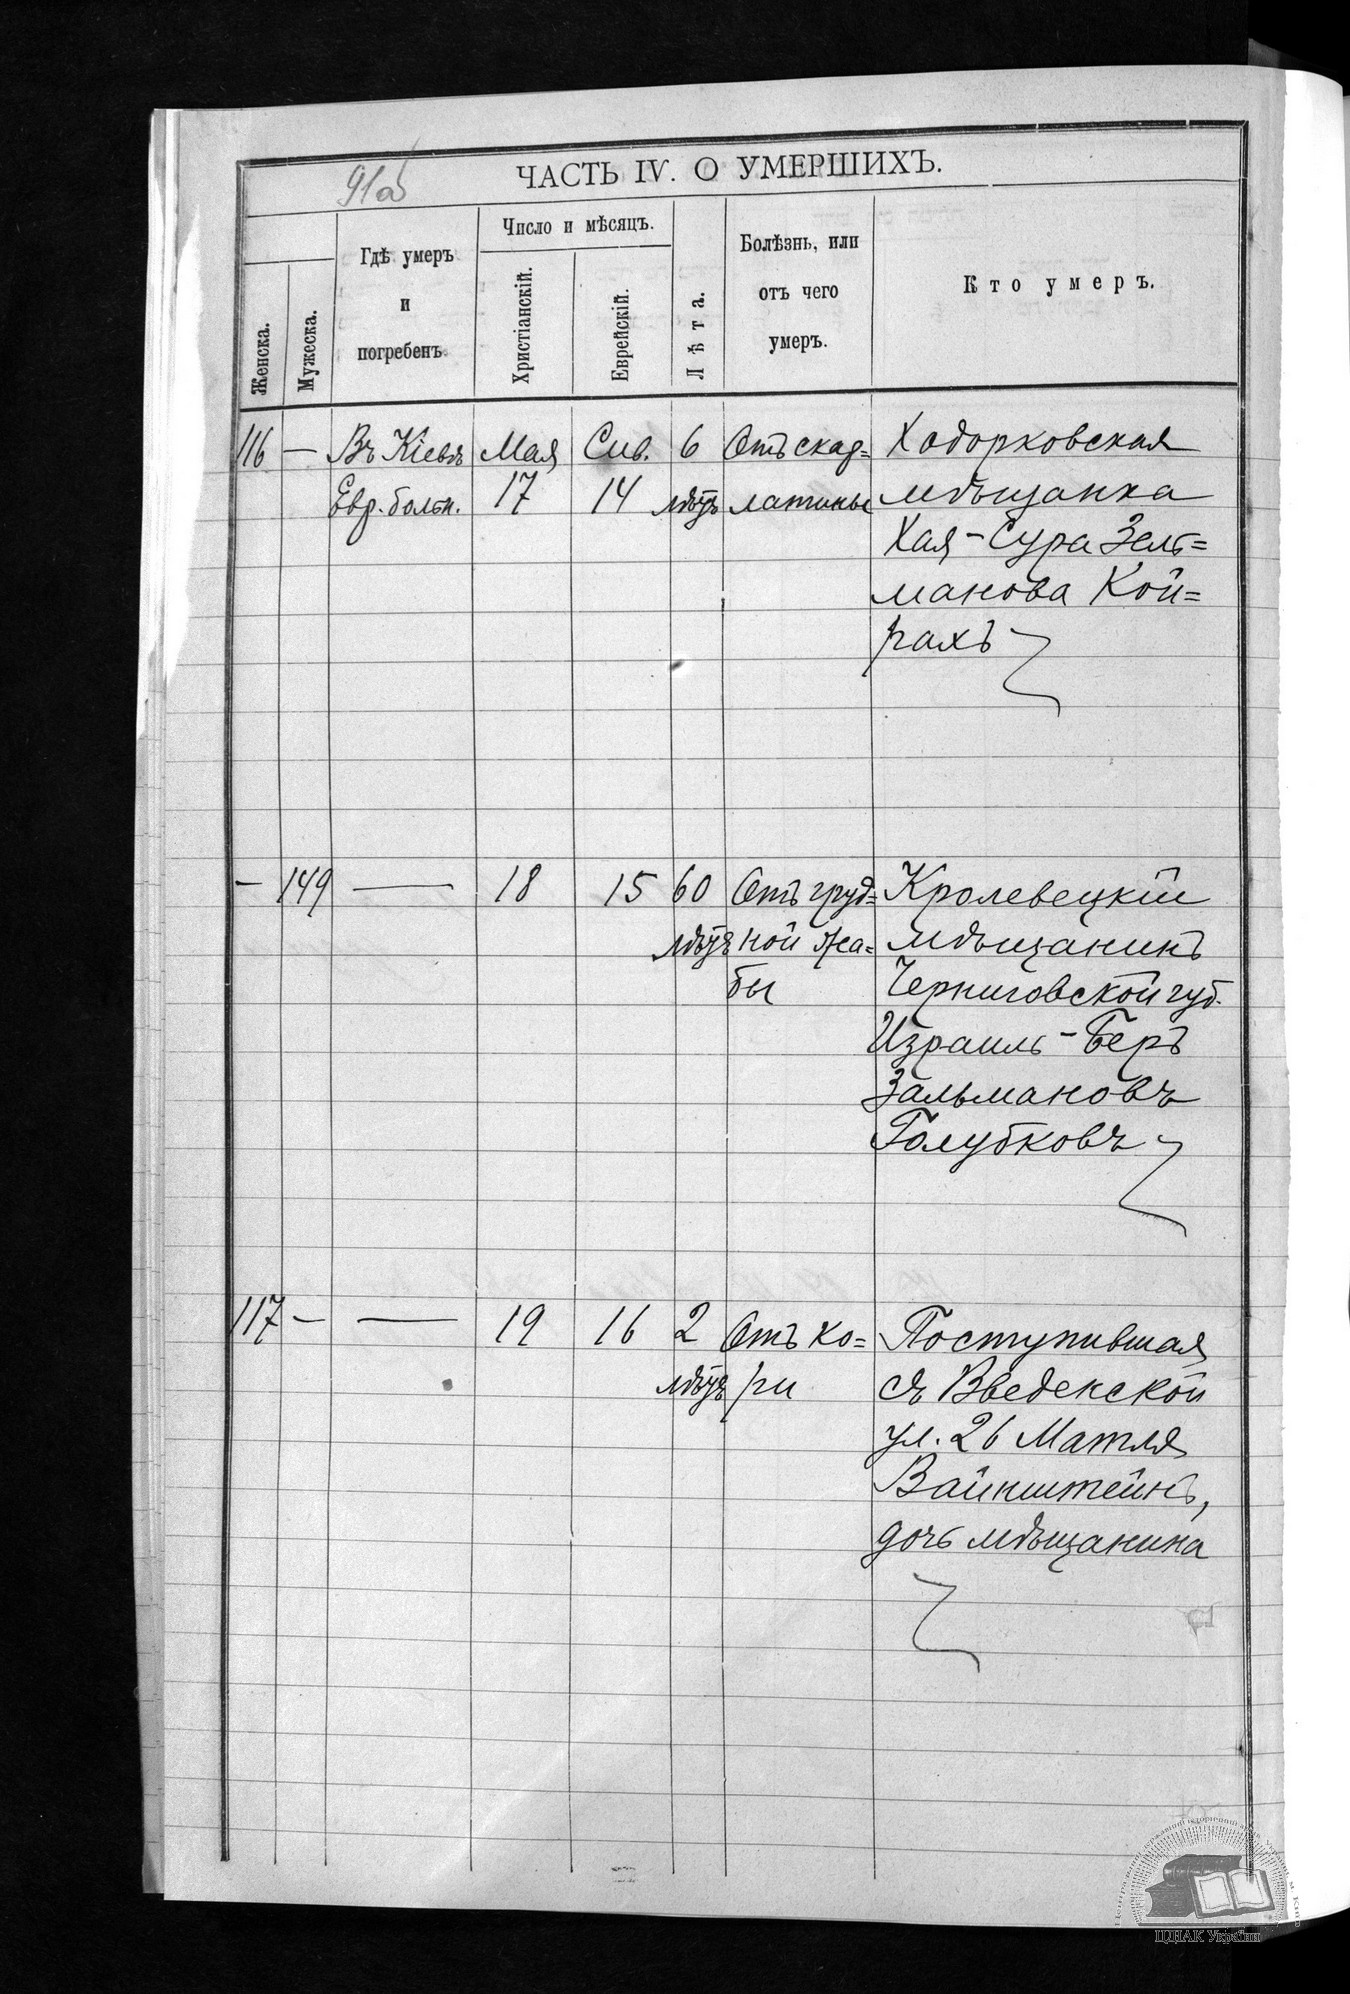 91об
ЧАСТЬ IV. О УМЕРШИХЪ.
Женска.
Мужеска.
Гдѣ умеръ
и
погребенъ.
Число и мѣсяцъ.
Христіанскій.
Еврейскій.
Лѣта.
Болѣзнь, или
отъ чего
умеръ.
Кто умеръ.
116 — Въ Кіевѣ Мая Сив. 6 Отъ скар= Ходорковская
Евр. больн. 17 14 лѣтъ латины мѣщанка
Хая-Сура Зель=
манова Кой=
рахъ
— 149 — 18 15 60 Отъ груд= Кролевецкій
лѣтъ ной жа= мѣщанинъ
бы Черниговской губ.
Израиль-Беръ
Зальмановъ
Голубковъ
117 — — 19 16 2 Отъ ко= Поступившая
лѣтъ ри съ Введенской
ул. 26 Матля
Вайнштейнъ,
дочь мѣщанина
ЦДІАК України